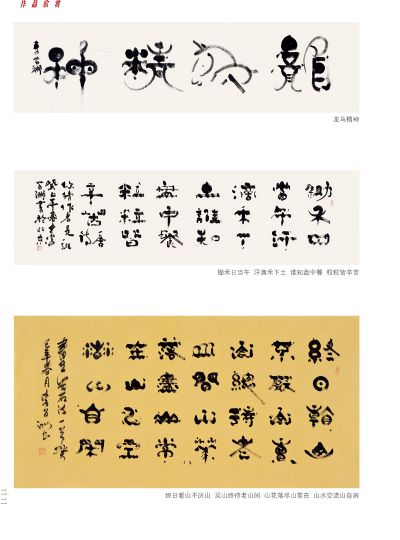 作品欣赏
龍馬精神
龙马精神
鋤禾日
當午汗
滴禾下
土誰知
盤中餐
粒粒皆
辛苦
锄禾日当午 汗滴禾下土 谁知盘中餐 粒粒皆辛苦
終日看山
不厭山買
山終待老
山間山花
落盡山常
在山水空
流山自閑
终日看山不厌山 买山终待老山间 山花落尽山常在 山水空流山自闲